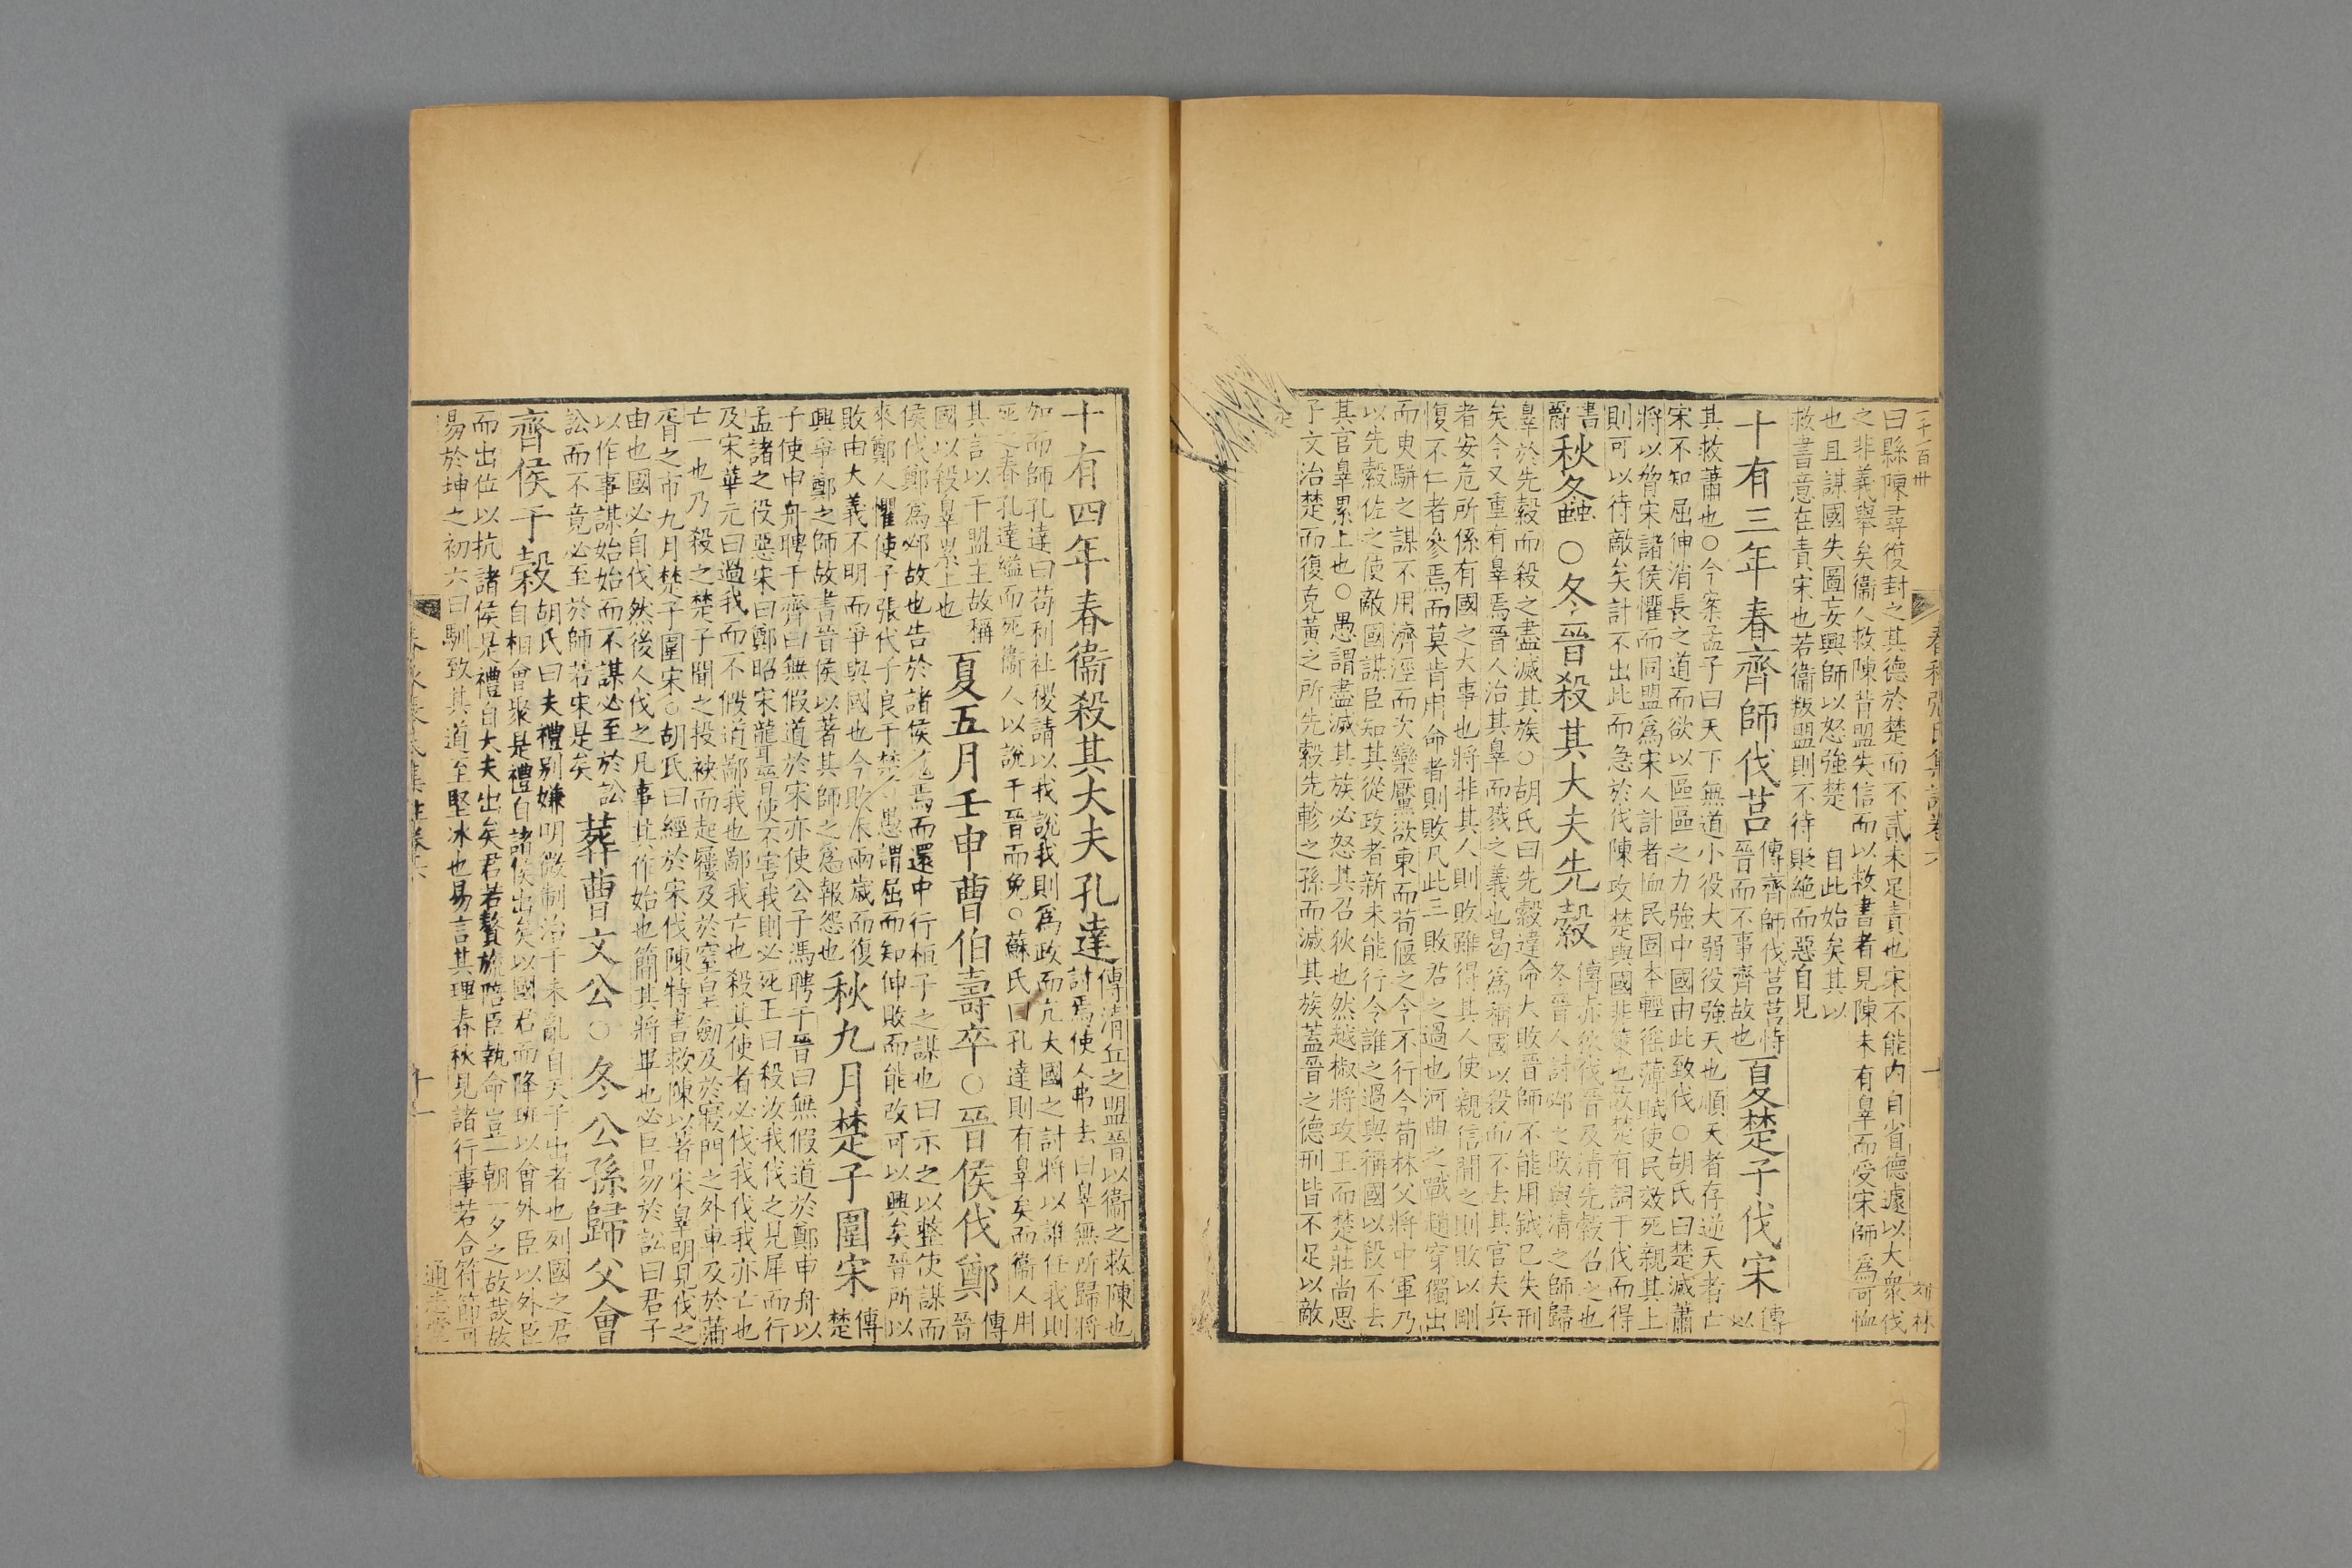 曰縣陳尋復封之其德於楚而不貳未足責也宋不能內自省德遽以大衆伐
之非義舉矣衞人救陳背盟失信而以救書者見陳未有辠而受宋師爲可恤
也且謀國失圖妄興師以怒強楚　自此始矣其以
救書意在責宋也若衞叛盟則不待貶絶而惡自見
十有三年春齊師伐莒
傳齊師伐莒莒恃
晉而不事齊故也
夏楚子伐宋
傳
以
其救蕭也○今案孟子曰天下無道小役大弱役強天也順天者存逆天者亡
宋不知屈伸消長之道而欲以區區之力強中國由此致伐○胡氏曰楚滅蕭
將以脅宋諸侯懼而同盟爲宋人計者恤民固本輕徭薄賦使民效死親其上
則可以待敵矣計不出此而急於伐陳攻楚與國非策也故楚有詞于伐而得
書
爵
秋螽○冬晉殺其大夫先縠
傳赤狄伐晉及清先縠召之也
冬晉人討邲之敗與清之師歸
辠於先縠而殺之盡滅其族○胡氏曰先縠違命大敗晉師不能用鉞已失刑
矣今又重有辠焉晉人治其辠而戮之義也曷爲稱國以殺而不去其官夫兵
者安危所係有國之大事也將非其人則敗雖得其人使親信間之則敗以剛
愎不仁者參焉而莫肯用命者則敗凡此三敗君之過也河曲之戰趙穿獨出
而臾駢之謀不用濟涇而次欒黶欲東而荀偃之令不行今荀林父將中軍乃
以先縠佐之使敵國謀臣知其從政者新未能行令誰之過與稱國以殺不去
其官辠累上也○愚謂盡滅其族必怒其召狄也然越椒將攻王而楚莊尚思
子文治楚而復克黃之所先縠先軫之孫而滅其族蓋晉之德刑皆不足以敵
十有四年春衞殺其大夫孔達
傳清丘之盟晉以衞之救陳也
討焉使人弗去曰辠無所歸將
加而師孔達曰苟利社稷請以我說我則爲政而亢大國之討將以誰任我則
死之春孔達縊而死衞人以說于晉而免○蘇氏曰孔達則有辠矣而衞人用
其言以干盟主故稱
國以殺辠累上也
夏五月壬申曹伯壽卒○晉侯伐鄭
傳
晉
侯伐鄭爲邲故也告於諸侯蒐焉而還中行桓子之謀也曰示之以整使謀而
來鄭人懼使子張代子良于楚○愚謂屈而知伸敗而能改可以興矣晉所以
敗由大義不明而爭與國也今敗於兩歲而復
興爭鄭之師故書晉侯以著其師之爲報怨也
秋九月楚子圍宋
傳
楚
子使申舟聘于齊曰無假道於宋亦使公子馮聘于晉曰無假道於鄭申舟以
孟諸之役惡宋曰鄭昭宋聾晉使不害我則必死王曰殺汝我伐之見犀而行
及宋華元曰過我而不假道鄙我也鄙我亡也殺其使者必伐我伐我亦亡也
亡一也乃殺之楚子聞之投袂而起屨及於窒皇劒及於寢門之外車及於蒲
胥之市九月楚子圍宋○胡氏曰經於宋伐陳特書救陳以著宋辠明見伐之
由也國必自伐然後人伐之凡事其作始也簡其將畢也必巨易於訟曰君子
以作事謀始始而不謀必至於訟
訟而不竟必至於師若宋是矣
葬曹文公○冬公孫歸父會
齊侯于穀
胡氏曰夫禮別嫌明微制治于未亂自天子出者也列國之君
自相會聚是禮自諸侯出矣以國君而降班以會外臣以外臣
而出位以抗諸侯是禮自大夫出矣君若贅旒陪臣執命豈一朝一夕之故哉故
易於坤之初六曰馴致其道至堅冰也易言其理春秋見諸行事若合符節可
通志堂